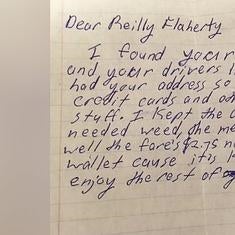 Dear Reilly Flaherty
I found your
and your drivers
had your address so
credit cards and
stuff. I kept the
needed weed, the
well the fare's $2.75
wallet cause it's
enjoy the rest of